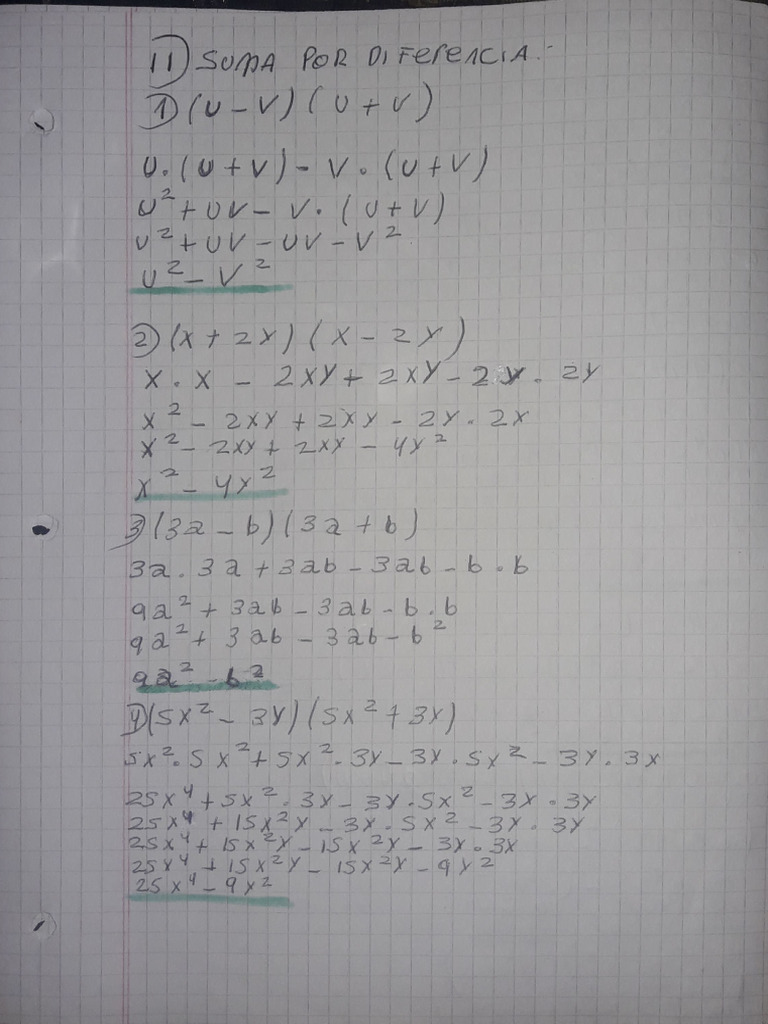 II) SUMA POR DIFERENCIA.-
1) (U - V) ( U + V)
U . (U + V) - V . (U + V)
U² + UV - V . (U + V)
U² + UV - UV - V²
U² - V²
2) (x + 2y) (x - 2y)
x . x - 2xy + 2xy - 2y . 2y
x² - 2xy + 2xy - 2y . 2y
x² - 2xy + 2xy - 4y²
x² - 4y²
3) (3a - b) (3a + b)
3a . 3a + 3ab - 3ab - b . b
9a² + 3ab - 3ab - b . b
9a² + 3ab - 3ab - b²
9a² - b²
4) (5x² - 3y) (5x² + 3y)
5x² . 5x² + 5x² . 3y - 3y . 5x² - 3y . 3y
25x⁴ + 5x² . 3y - 3y . 5x² - 3y . 3y
25x⁴ + 15x²y - 3y . 5x² - 3y . 3y
25x⁴ + 15x²y - 15x²y - 3y . 3y
25x⁴ + 15x²y - 15x²y - 9y²
25x⁴ - 9y²